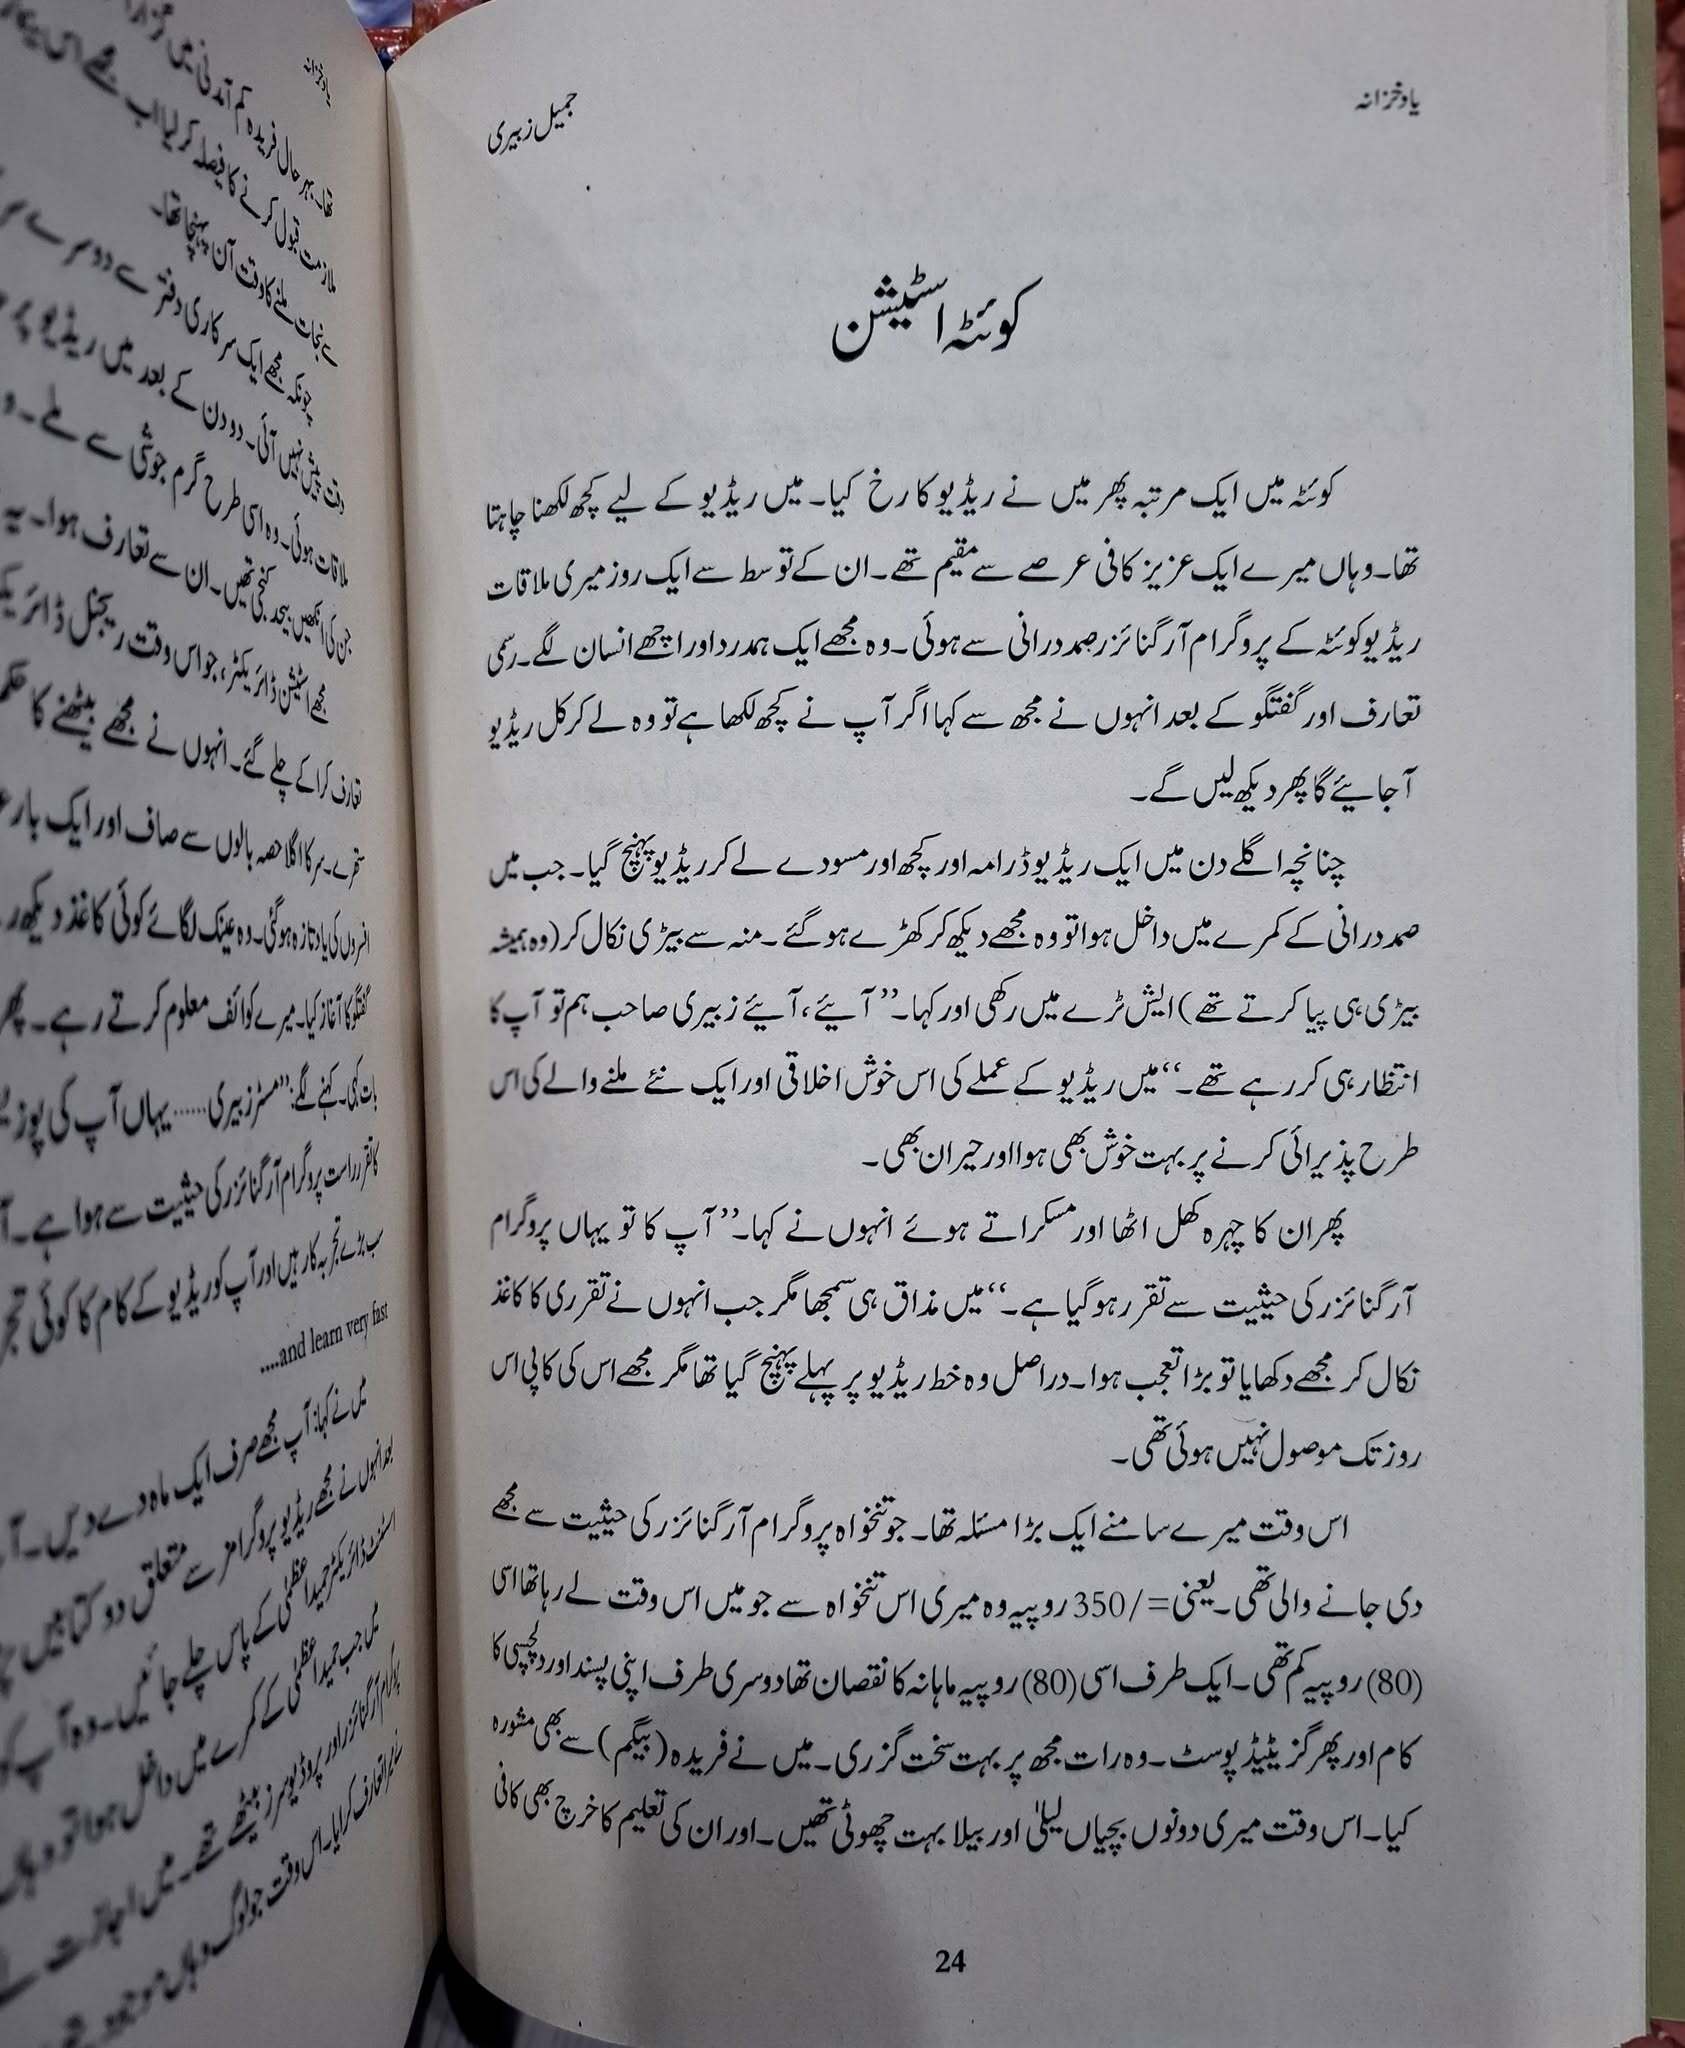 یادخزانہ
جمیل زبیری
کوئٹہ اسٹیشن
کوئٹہ میں ایک مرتبہ پھر میں نے ریڈیو کا رخ کیا۔ میں ریڈیو کے لیے کچھ لکھنا چاہتا
تھا۔ وہاں میرے ایک عزیز کافی عرصے سے مقیم تھے۔ ان کے توسط سے ایک روز میری ملاقات
ریڈیو کوئٹہ کے پروگرام آرگنائزر صمد درانی سے ہوئی۔ وہ مجھے ایک ہمدرد اور اچھے انسان لگے۔ رسمی
تعارف اور گفتگو کے بعد انہوں نے مجھ سے کہا اگر آپ نے کچھ لکھا ہے تو وہ لے کر کل ریڈیو
آجائیے گا پھر دیکھ لیں گے۔
چنانچہ اگلے دن میں ایک ریڈیو ڈرامہ اور کچھ اور مسودے لے کر ریڈیو پہنچ گیا۔ جب میں
صمد درانی کے کمرے میں داخل ہوا تو وہ مجھے دیکھ کر کھڑے ہوگئے۔ منہ سے بیڑی نکال کر (وہ ہمیشہ
بیڑی ہی پیا کرتے تھے) ایش ٹرے میں رکھی اور کہا۔ ’’آیئے، آیئے زبیری صاحب ہم تو آپ کا
انتظار ہی کر رہے تھے۔‘‘ میں ریڈیو کے عملے کی اس خوش اخلاقی اور ایک نئے ملنے والے کی اس
طرح پذیرائی کرنے پر بہت خوش بھی ہوا اور حیران بھی۔
پھر ان کا چہرہ کھل اٹھا اور مسکراتے ہوئے انہوں نے کہا۔ ’’آپ کا تو یہاں پروگرام
آرگنائزر کی حیثیت سے تقرر ہو گیا ہے۔‘‘ میں مذاق ہی سمجھا مگر جب انہوں نے تقرری کا کاغذ
نکال کر مجھے دکھایا تو بڑا تعجب ہوا۔ دراصل وہ خط ریڈیو پر پہلے پہنچ گیا تھا مگر مجھے اس کی کاپی اس
روز تک موصول نہیں ہوئی تھی۔
اس وقت میرے سامنے ایک بڑا مسئلہ تھا۔ جو تنخواہ پروگرام آرگنائزر کی حیثیت سے مجھے
دی جانے والی تھی۔ یعنی =/350 روپیہ وہ میری اس تنخواہ سے جو میں اس وقت لے رہا تھا اسی
(80) روپیہ کم تھی۔ ایک طرف اسی (80) روپیہ ماہانہ کا نقصان تھا دوسری طرف اپنی پسند اور دلچسپی کا
کام اور پھر گزیٹیڈ پوسٹ۔ وہ رات مجھ پر بہت سخت گزری۔ میں نے فریدہ (بیگم) سے بھی مشورہ
کیا۔ اس وقت میری دونوں بچیاں لیلیٰ اور بیلا بہت چھوٹی تھیں۔ اور ان کی تعلیم کا خرچ بھی کافی
24
تھا۔ بہر حال فریدہ کم آمدنی میں
ملازمت قبول کرنے کا فیصلہ کر لیا اب مجھے اس
سے نجات ملنے کا وقت آن پہنچا تھا۔
چونکہ مجھے ایک سرکاری دفتر سے دوسرے
دقت پیش نہیں آئی۔ دو دن کے بعد میں ریڈیو پر
ملاقات ہوئی۔ وہ اسی طرح گرم جوشی سے ملے۔
جن کی آنکھیں بیحد کنجی تھیں۔ ان سے تعارف ہوا۔ یہ
مجھے اسٹیشن ڈائریکٹر، جو اس وقت ریجنل
تعارف کرا کے چلے گئے۔ انہوں نے مجھے بیٹھنے کا
ستھرے۔ سر کا اگلا حصہ بالوں سے صاف اور ایک بار
افسروں کی یاد تازہ ہو گئی۔ وہ عینک لگائے کوئی کاغذ دیکھ
گفتگو کا آغاز کیا۔ میرے کوائف معلوم کرتے رہے۔ پھر
بات کہی۔ کہنے لگے: ’’مسٹر زبیری...... یہاں آپ کی
کا تقرر راست پروگرام آرگنائزر کی حیثیت سے ہوا ہے۔
سب بڑے تجربہ کار ہیں اور آپ کو ریڈیو کے کام کا کوئی
....and learn very fast
میں نے کہا: آپ مجھے صرف ایک ماہ دے دیں۔
بعد انہوں نے مجھے ریڈیو پروگرامز سے متعلق دو کتابیں
اسٹنٹ ڈائریکٹر حمید اعظمی کے پاس چلے جائیں۔ وہ آپ کو
میں جب حمید اعظمی کے کمرے میں داخل ہوا تو وہاں
پروگرام آرگنائزر اور پروڈیوسرز بیٹھے تھے۔ میں اجازت لے
تعارف کرایا۔ اس وقت جو لوگ وہاں موجود